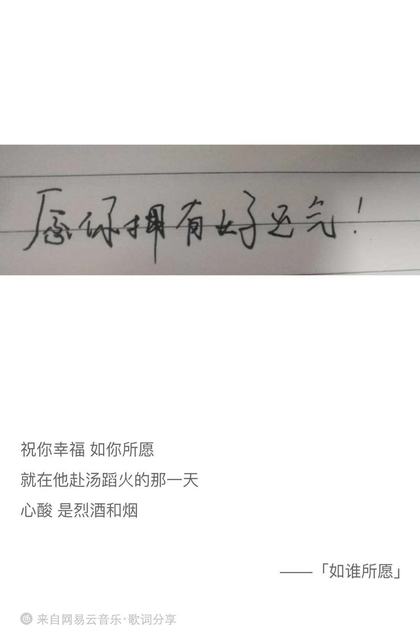 愿你拥有好运气！
祝你幸福 如你所愿
就在他赴汤蹈火的那一天
心酸 是烈酒和烟
——「如谁所愿」
来自网易云音乐·歌词分享